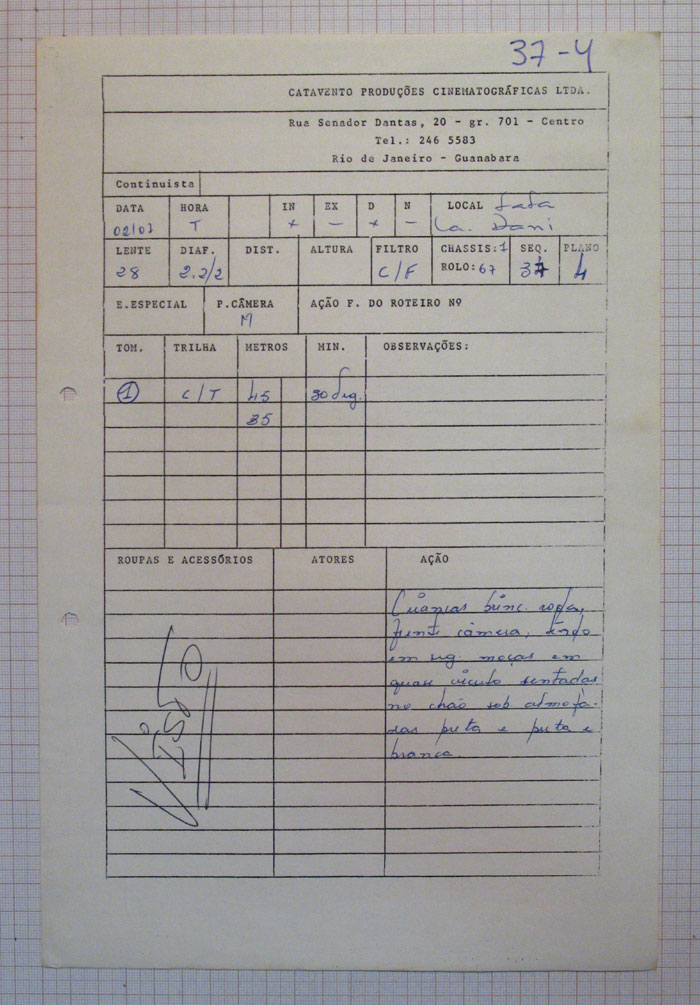 37-4
CATAVENTO PRODUÇÕES CINEMATOGRÁFICAS LTDA.
Rua Senador Dantas, 20 - gr. 701 - Centro
Tel.: 246 5583
Rio de Janeiro - Guanabara
Continuista
DATA HORA IN EX D N LOCAL Sala
02/07 T + - + - Ca. Dani
LENTE DIAF. DIST. ALTURA FILTRO CHASSIS: 1 SEQ. PLANO
28 2.2/2 C/F ROLO: 67 37 4
E.ESPECIAL P.CÂMERA AÇÃO F. DO ROTEIRO Nº
M
TOM. TRILHA METROS MIN. OBSERVAÇÕES:
1 C/T 45 30 seg.
35
ROUPAS E ACESSÓRIOS ATORES AÇÃO
Crianças brinc. roda,
frente câmera, tendo
em seg. moças em
quase círculo sentadas
no chão sob almofa-
das preta e preta e
branca.
VISTO